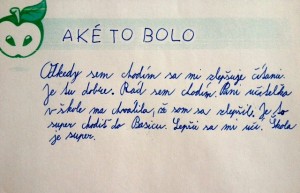 AKÉ TO BOLO
Odkedy sem chodím sa mi zlepšuje čítanie.
Je tu dobre. Rád sem chodím. Pani učitelka
v škole ma chválila, že som sa zlepšil. Je to
super chodiť do Basicu. Lepši sa mi učí. Škola
je super.